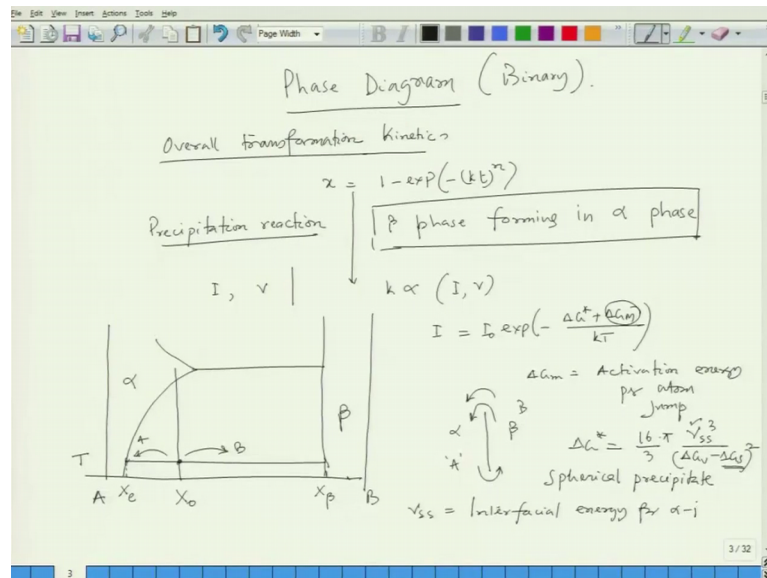 File Edit View Insert Actions Tools Help
Page Width
B I
Phase Diagram (Binary).
Overall transformation Kinetics
x = 1 - exp(-(kt)^n)
Precipitation reaction
β phase forming in α phase
I, v
k ∝ (I, v)
I = I₀ exp(- ΔG* + ΔGm / kT)
ΔGm = Activation energy
pr atom
jump
α
β
T
A
B
A Xe X₀ Xβ B
α
'A'
B
β
ΔG* = 16·π/3 γss³/(ΔGv - ΔGs)²
Spherical precipitate
γss = Interfacial energy for α-i
3/32
3